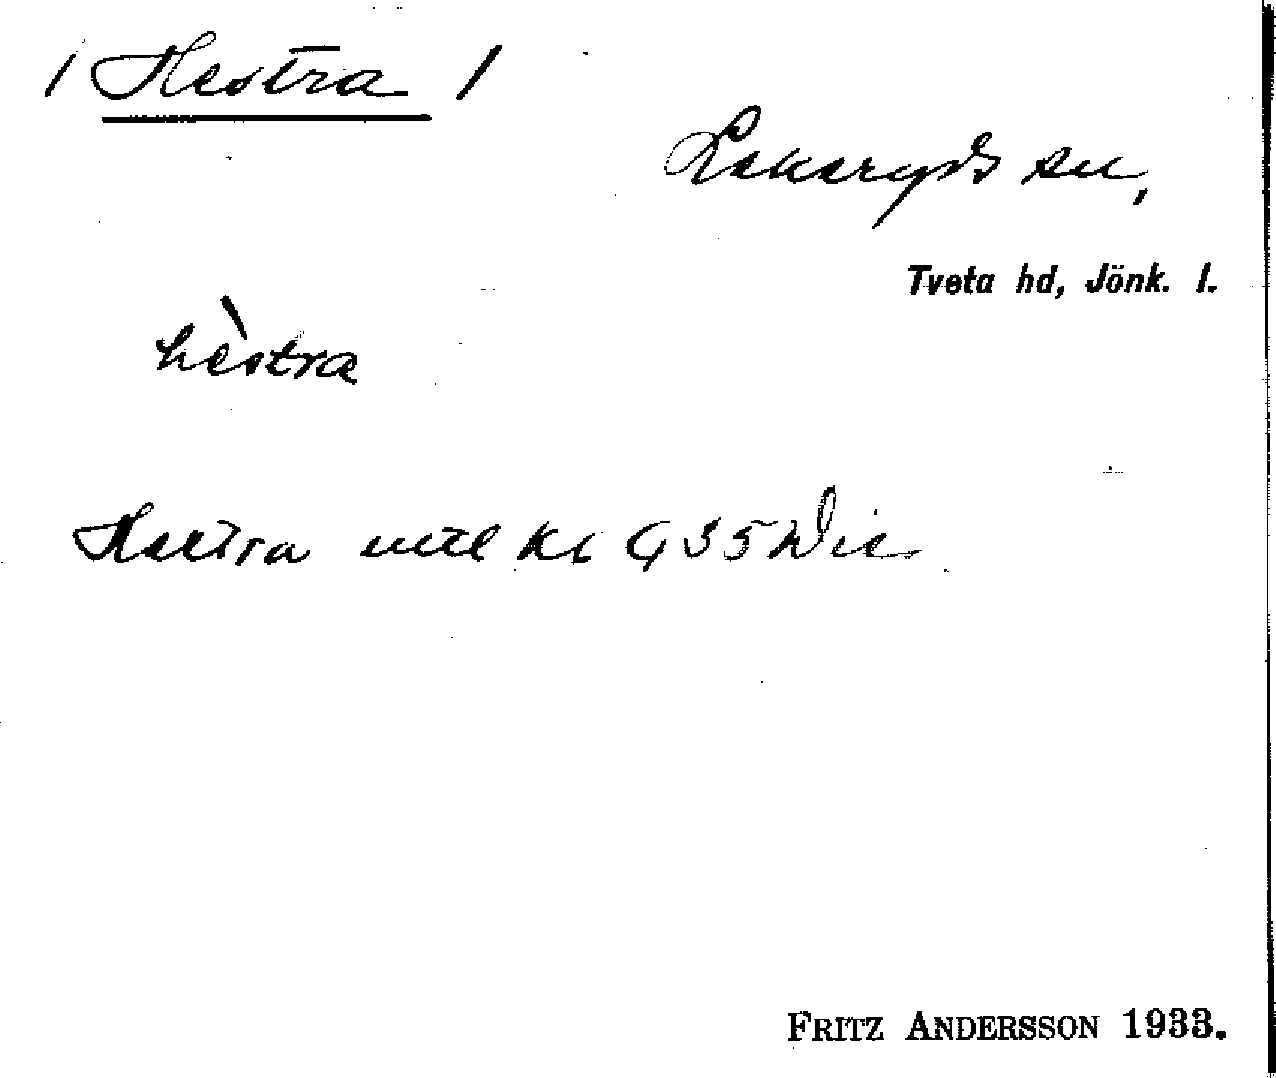 / Hestra /
Lekeryds sn,
Tveta hd, Jönk. l.
hèstra
Hestra mtl Kl G 35
FRITZ ANDERSSON 1933.